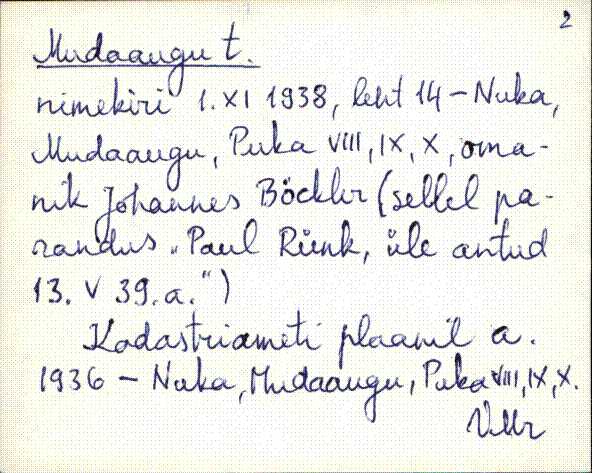 2
Mudaaugu t.
nimekiri 1.XI 1938, leht 14 – Nuka,
Mudaaugu, Puka VIII, IX, X, oma-
nik Johannes Böckler (sellel pa-
randus „Paul Rünk, üle antud
13. V 39. a.")
Kadastriameti plaanil a.
1936 – Nuka, Mudaaugu, Puka VIII, IX, X.